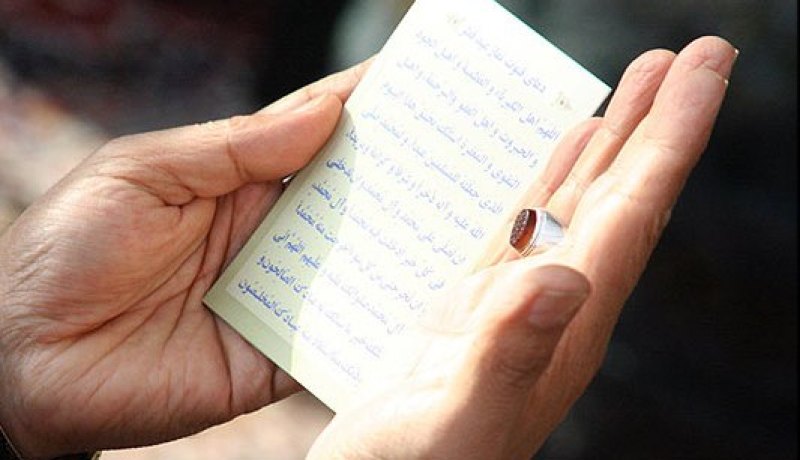 دعای قنوت نماز عید فطر
اللهم اهل الکبریاء و العظمة و اهل الجود
و الجبروت و اهل العفو و الرحمة و اهل
التقوی و المغفرة اسئلک بحق هذا الیوم
الذی جعلته للمسلمین عیداً و لمحمد صلی
الله علیه و آله ذخراً و شرفاً و کرامة و مزیداً
ان تصلی علی محمد و آل محمد و ان تدخلنی
فی کل خیر ادخلت فیه محمداً و آل محمد
و ان تخرجنی من کل سوء اخرجت منه محمداً
و آل محمد صلواتک علیه و علیهم اللهم انی
اسئلک خیر ما سئلک به عبادک الصالحون و
اعوذ بک مما استعاذ منه عبادک المخلصون